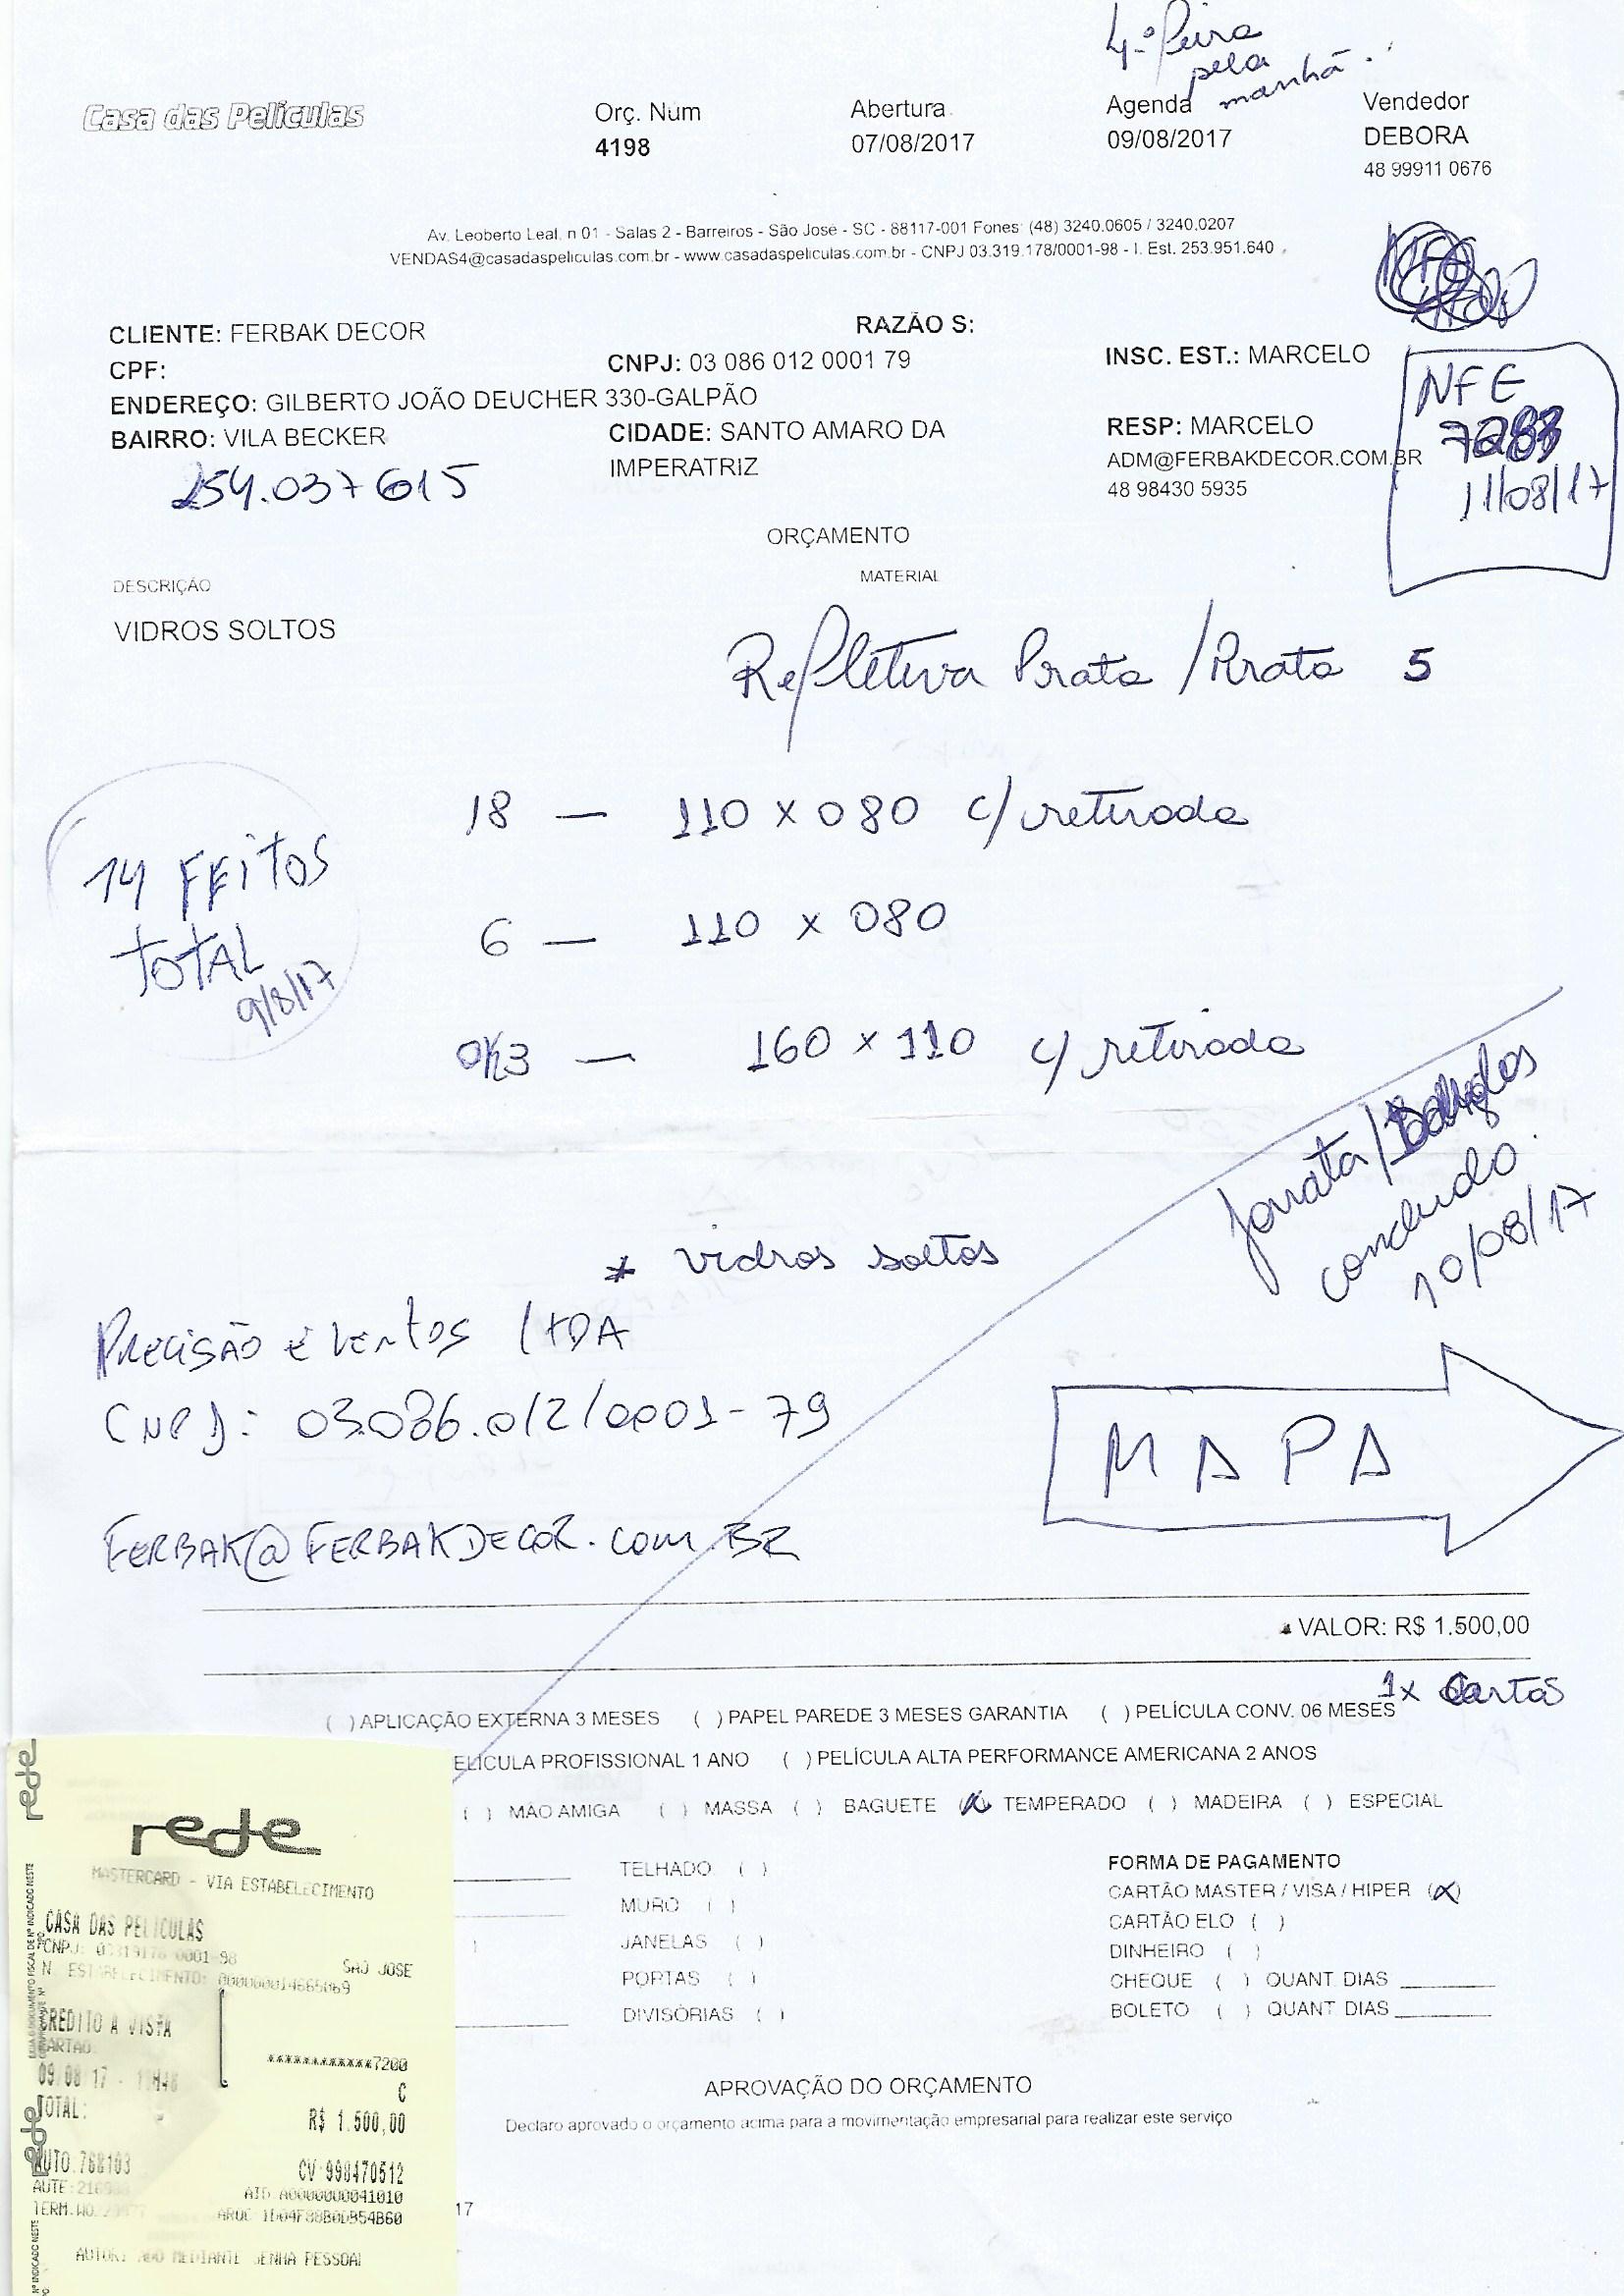 4.ª feira
pela
manhã.
Casa das Películas
Orç. Num Abertura Agenda Vendedor
4198 07/08/2017 09/08/2017 DEBORA
48 99911 0676
Av. Leoberto Leal, n 01 - Salas 2 - Barreiros - São José - SC - 88117-001 Fones: (48) 3240.0605 / 3240.0207
VENDAS4@casadaspeliculas.com.br - www.casadaspeliculas.com.br - CNPJ 03.319.178/0001-98 - I. Est. 253.951.640
CLIENTE: FERBAK DECOR RAZÃO S:
CPF: CNPJ: 03 086 012 0001 79 INSC. EST.: MARCELO
ENDEREÇO: GILBERTO JOÃO DEUCHER 330-GALPÃO
BAIRRO: VILA BECKER CIDADE: SANTO AMARO DA IMPERATRIZ
RESP: MARCELO
ADM@FERBAKDECOR.COM.BR
48 98430 5935
254.037615
NFE
11/08/17
ORÇAMENTO
DESCRIÇÃO MATERIAL
VIDROS SOLTOS
Refletiva Prata / Prata 5
18 — 110 x 080 c/ retirada
14 FEITOS
TOTAL
9/8/17
6 — 110 x 080
OK3 — 160 x 110 c/ retirada
concluido
10/08/17
* vidros soltos
PRECISÃO EVENTOS LTDA
CNPJ: 03.086.012/0001-79
MAPA
FERBAK@FERBAKDECOR.COM.BR
VALOR: R$ 1.500,00
1x Cartão
( ) APLICAÇÃO EXTERNA 3 MESES ( ) PAPEL PAREDE 3 MESES GARANTIA ( ) PELÍCULA CONV. 06 MESES
ELÍCULA PROFISSIONAL 1 ANO ( ) PELÍCULA ALTA PERFORMANCE AMERICANA 2 ANOS
( ) MÃO AMIGA ( ) MASSA ( ) BAGUETE (X) TEMPERADO ( ) MADEIRA ( ) ESPECIAL
TELHADO ( )
MURO ( )
JANELAS ( )
PORTAS ( )
DIVISÓRIAS ( )
FORMA DE PAGAMENTO
CARTÃO MASTER / VISA / HIPER (X)
CARTÃO ELO ( )
DINHEIRO ( )
CHEQUE ( ) QUANT DIAS
BOLETO ( ) QUANT DIAS
APROVAÇÃO DO ORÇAMENTO
Declaro aprovado o orçamento acima para a movimentação empresarial para realizar este serviço
17
rede
MASTERCARD - VIA ESTABELECIMENTO
CASA DAS PELICULAS
CNPJ: 03319178 0001-98
SAO JOSE
N. ESTABELECIMENTO: 000000014665069
CREDITO A VISTA
CARTAO
************7200
09/08/17
C
TOTAL: R$ 1.500,00
AUTO:768103 CV:990470512
AID:A0000000041010
AUTORIZADO MEDIANTE SENHA PESSOAL
rede
rede